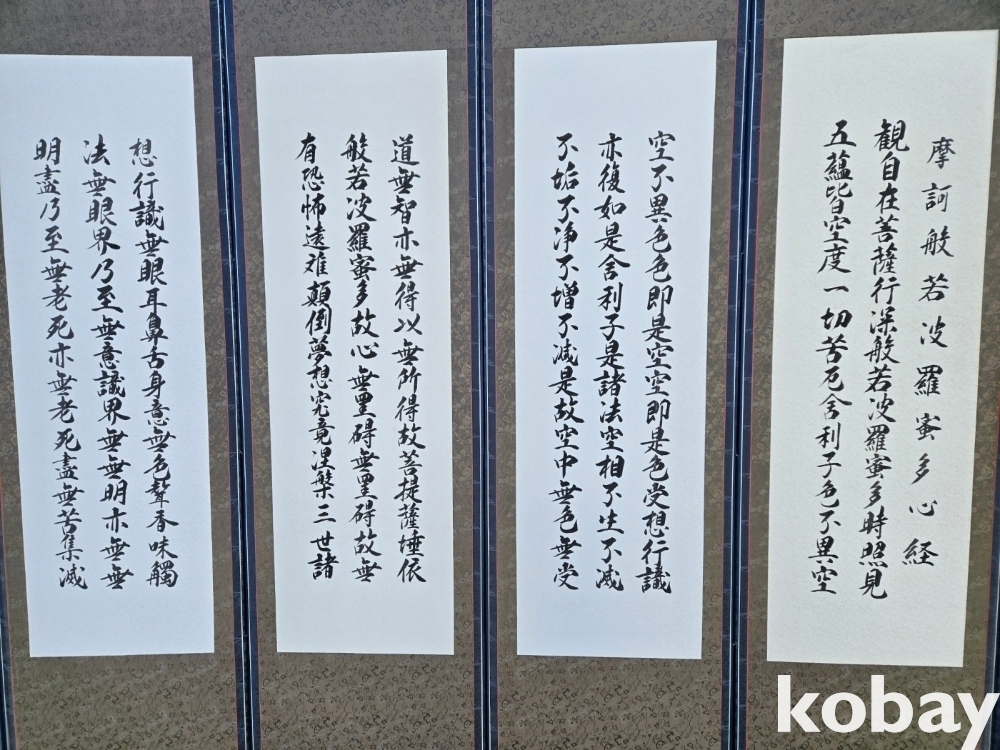 摩訶般若波羅蜜多心経
観自在菩薩行深般若波羅蜜多時照見
五蘊皆空度一切苦厄舍利子色不異空
空不異色色即是空空即是色受想行識
亦復如是舍利子是諸法空相不生不滅
不垢不浄不增不減是故空中無色無受
道無智亦無得以無所得故菩提薩埵依
般若波羅蜜多故心無罣碍無罣碍故無
有恐怖遠难顛倒夢想究竟涅槃三世諸
想行識無眼耳鼻舌身意無色聲香味觸
法無眼界乃至無意識界無無明亦無無
明盡乃至無老死亦無老死盡無苦集滅
kobay